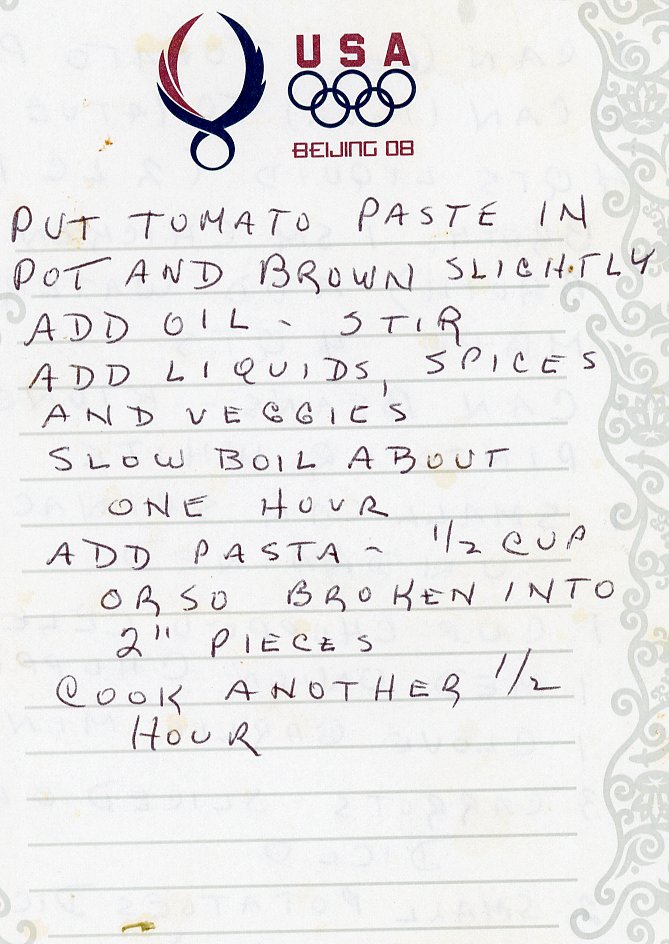 USA
BEIJING 08
PUT TOMATO PASTE IN
POT AND BROWN SLIGHTLY
ADD OIL - STIR
ADD LIQUIDS, SPICES
AND VEGGIE'S
SLOW BOIL ABOUT
ONE HOUR
ADD PASTA - 1/2 CUP
OR SO BROKEN INTO
2" PIECES
COOK ANOTHER 1/2
HOUR